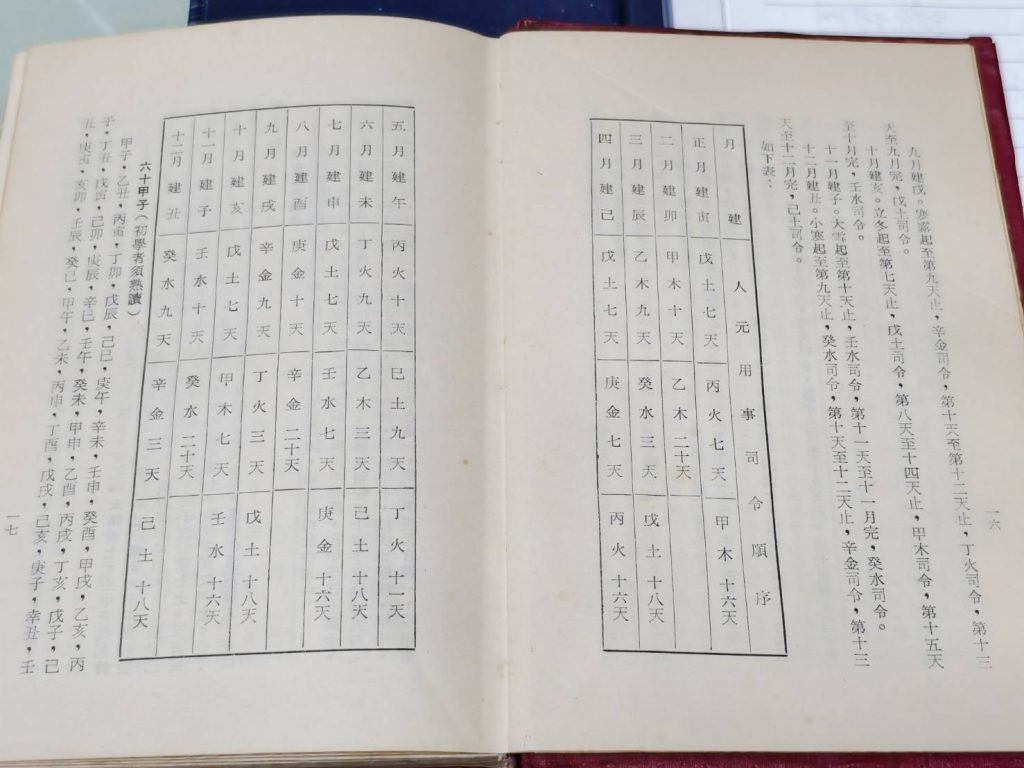 九月建戌。寒露起至第九天止，辛金司令，第十天至第十二天止，丁火司令，第十三
天至九月完，戊土司令。
十月建亥。立冬起至第七天止，戊土司令，第八天至十四天止，甲木司令，第十五天
至十月完，壬水司令。
十一月建子。大雪起至第十天止，壬水司令，第十一天至十一月完，癸水司令。
十二月建丑。小寒起至第九天止，癸水司令，第十天至十二天止，辛金司令，第十三
天至十二月完，己土司令。
如下表：
月建 人元用事司令順序
正月建寅 戊土七天 丙火七天 甲木十六天
二月建卯 甲木十天 乙木二十天
三月建辰 乙木九天 癸水三天 戊土十八天
四月建己 戊土七天 庚金七天 丙火十六天
一六
五月建午 丙火十天 巳土九天 丁火十一天
六月建未 丁火九天 乙木三天 己土十八天
七月建申 戊土七天 壬水七天 庚金十六天
八月建酉 庚金十天 辛金二十天
九月建戌 辛金九天 丁火三天 戊土十八天
十月建亥 戊土七天 甲木七天 壬水十六天
十一月建子 壬水十天 癸水二十天
十二月建丑 癸水九天 辛金三天 己土十八天
六十甲子（初學者須熟讀）
甲子，乙丑，丙寅，丁卯，戊辰，己巳，庚午，辛未，壬申，癸酉，甲戌，乙亥，丙
子，丁丑，戊寅，己卯，庚辰，辛巳，壬午，癸未，甲申，乙酉，丙戌，丁亥，戊子，己
丑，庚寅，亥卯，壬辰，癸巳，甲午，乙未，丙申，丁酉，戊戌，己亥，庚子，幸丑，壬
一七